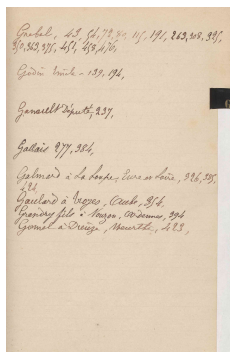 Grebel, 43, 54, 72, 80, 115, 191, 263, 308, 325,
350, 363, 375, 451, 458, 476,
Gédéon Emile - 139, 194,
Ganault Député, 237,
Gallais 277, 384,
Galmard à La Loupe, Eure et Loire, 326, 385,
Gaulard à Troyes, Aube, 354,
Grandry fils à Nouzon, Ardennes, 394
Gomel à Dieuze, Meurthe, 423,